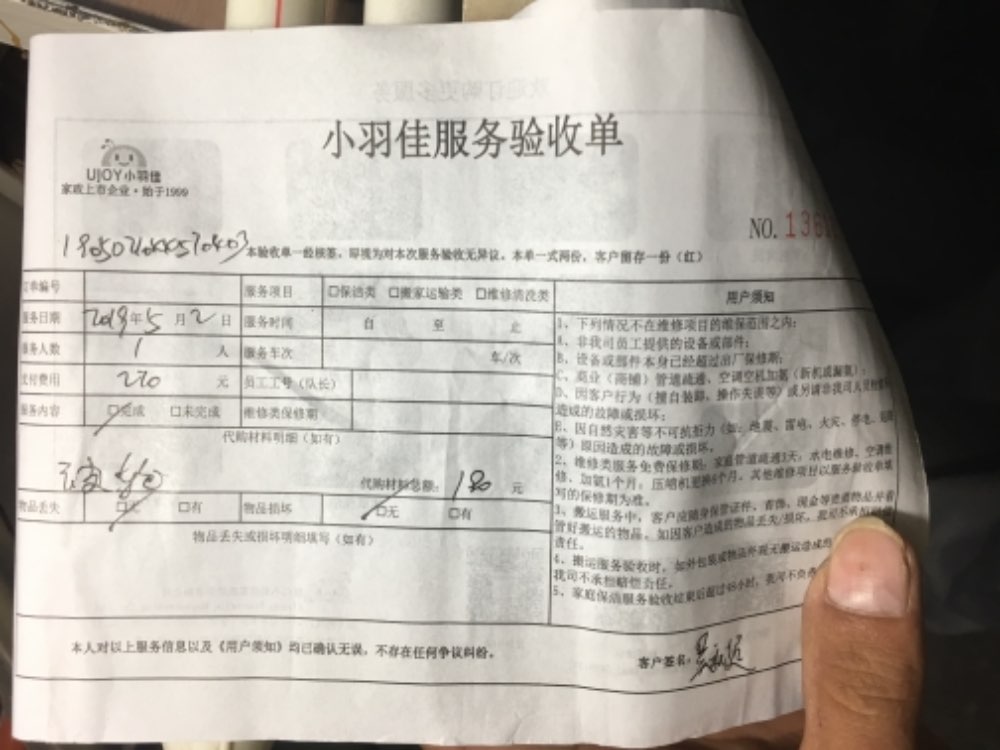 小羽佳服务验收单
UJOY小羽佳
家政上市企业·始于1999
NO. 136
本验收单一经核签，即视为对本次服务验收无异议。本单一式两份，客户留存一份（红）
订单编号 服务项目 □保洁类 □搬家运输类 □维修清洗类
服务日期 2019年5月2日 服务时间 自 至 止
服务人数 1 人 服务车次 车/次
支付费用 270 元 员工工号（队长）
服务内容 □完成 □未完成 维修类保修期
代购材料明细（如有）
代购材料总额： 180 元
物品丢失 □无 □有 物品损坏 □无 □有
物品丢失或损坏明细填写（如有）
用户须知
1、下列情况不在维修项目的维保范围之内：
A、非我司员工提供的设备或部件；
B、设备或部件本身已经超过出厂保修期；
C、商业（商铺）管道疏通、空调空机加氟（新机或漏氟）；
D、因客户行为（擅自装卸、操作失误等）或另请非我司人员
造成的故障或损坏；
E、因自然灾害等不可抗拒力（如：地震、雷电、火灾、停电、
等）原因造成的故障或损坏。
2、维修类服务免费保修期：家庭管道疏通3天；水电维修、空调维
修、加氟1个月；压缩机更换6个月。其他维修项目以服务验收单填
写的保修期为准。
3、搬运服务中，客户应随身保管证件、首饰、现金等贵重物品并看
管好搬运的物品。如因客户造成的物品丢失/损坏，我司不承担
责任。
4、搬运服务验收时，如外包装或物品外观无搬运造成的
我司不承担赔偿责任。
5、家庭保洁服务验收结束后超过48小时，我司不负责
本人对以上服务信息以及《用户须知》均已确认无误，不存在任何争议纠纷。
客户签名：